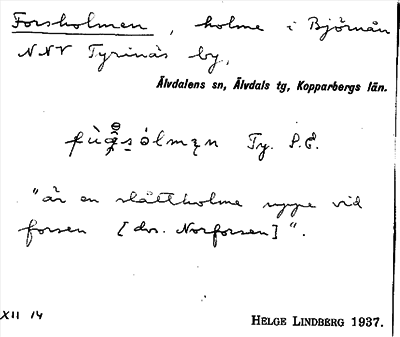 Forsholmen, holme i Björnån
NNV Tyrinäs by,
Älvdalens sn, Älvdals tg, Kopparbergs län.
Ty. P.E.
"är en slåttholme uppe vid
forsen [dvs. Norforsen]".
XII 14
HELGE LINDBERG 1937.